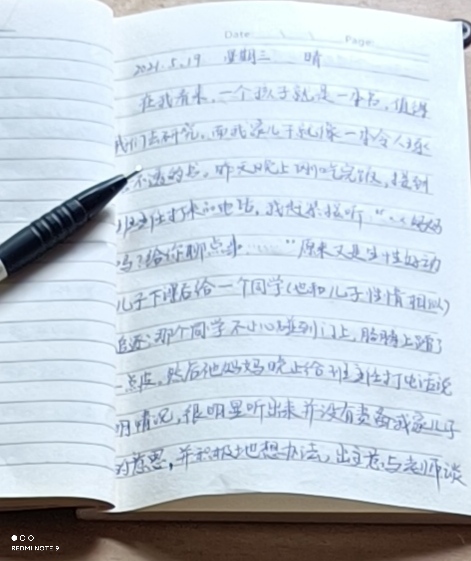 Date      Page
2021.5.19 星期三 晴
在我看来,一个孩子就是一本书,值得
我们去研究,而我家儿子就像一本令人琢
不透的书。昨天晚上刚吃完饭,接到
班主任打来的电话,我赶紧接听"..妈妈
吗?给你聊点事……"原来又是生性好动
儿子下课后给一个同学(也和儿子性情相似)
追逐,那个同学不小心碰到门上,胳膊上蹭了
一点皮,然后他妈妈晚上给班主任打电话说
明情况,很明显听出来并没有责备我家儿子
的意思,并积极地想办法,出主意与老师谈
REDMI NOTE 9